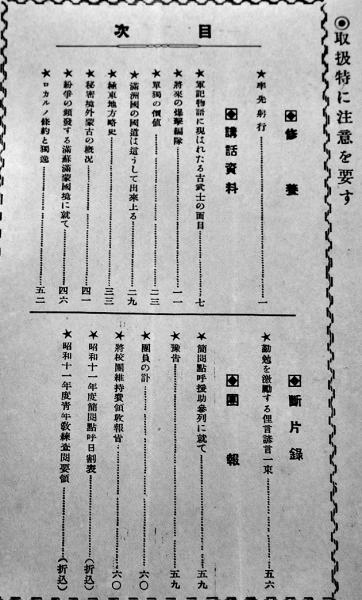 ◉取扱特に注意を要す
目次
修養
★率先躬行…一
講話資料
★軍記物語に現はれたる古武士の面目…七
★將來の爆擊編隊…一一
★單獨の價値…二三
★滿洲國の國道は這うして出來上る…二九
★極東地方略史…三三
★秘密境外蒙古の概況…四一
★紛爭の頻發する滿蘇滿蒙國境に就て…四六
★ロカルノ條約と獨逸…五二
斷片錄
★勤勉を激勵する俚言諺言一束…五六
團報
★簡閱點呼援助參列に就て…五九
★豫告…五九
★團員の訃…六〇
★將校團維持費領收報告…六〇
★昭和十一年度簡閱點呼日割表…(折込)
★昭和十一年度靑年敎練査閱要領…(折込)